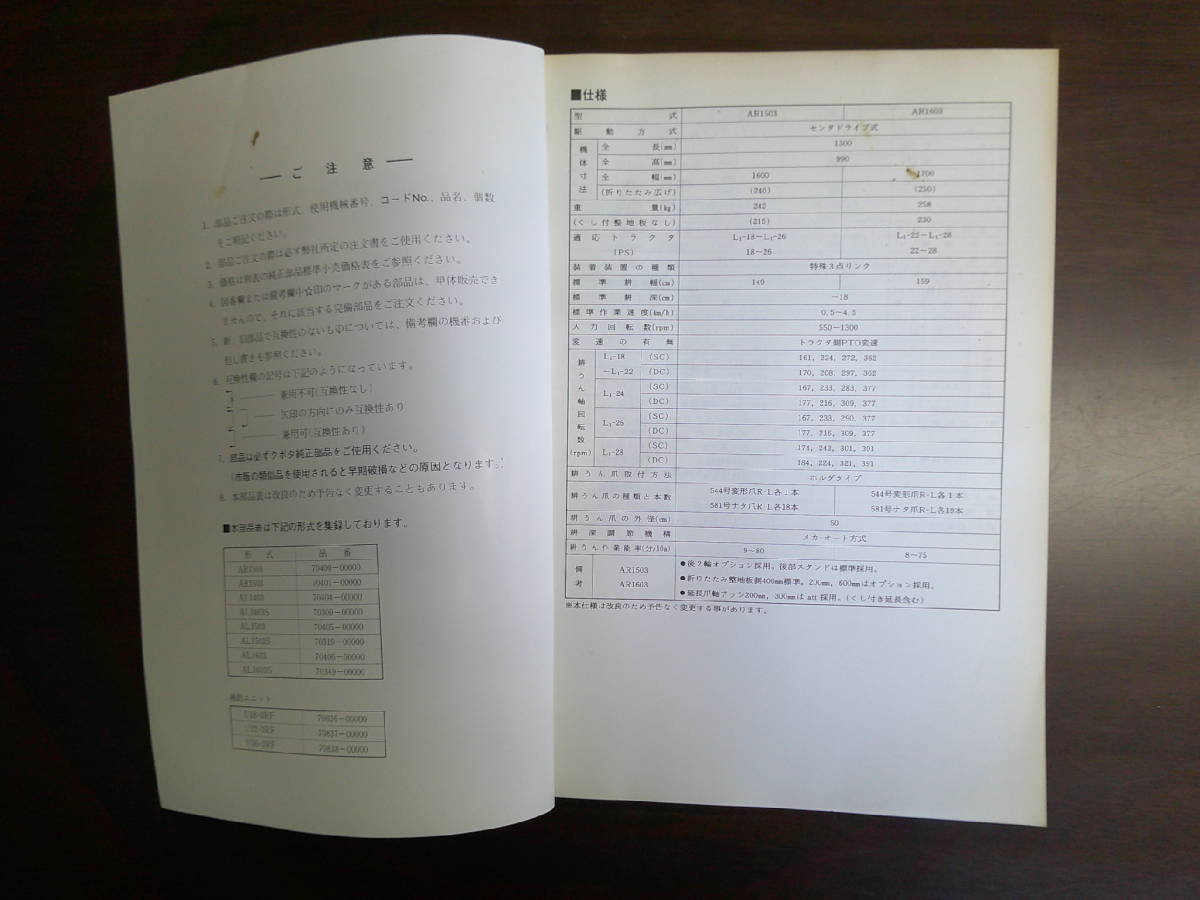 ご注意
1. 部品ご注文の際は形式、使用機械番号、コードNo.、品名、個数
をご明記ください。
2. 部品ご注文の際は必ず弊社所定の注文書をご使用ください。
3. 価格は別表の純正部品標準小売価格表をご参照ください。
4. 図番欄または備考欄中☆印のマークがある部品は、単体販売でき
ませんので、それに該当する完備部品をご注文ください。
5. 新、旧部品で互換性のないものについては、備考欄の機番および
但し書きを参照ください。
6. 互換性欄の記号は下記のようになっています。
兼用不可(互換性なし)
矢印の方向にのみ互換性あり
兼用可(互換性あり)
7. 部品は必ずクボタ純正部品をご使用ください。
(市販の類似品を使用されると早期破損などの原因となります。)
8. 本部品表は改良のため予告なく変更することもあります。
■本部品表は下記の形式を集録しております。
形式 品番
AR1503 70400-00000
AR1603 70401-00000
AL1403 70404-00000
AL1403S 70309-00000
AL1503 70405-00000
AL1503S 70319-00000
AL1603 70406-00000
AL1603S 70349-00000
補助ユニット
70836-00000
70837-00000
70838-00000
■仕様
型式 AR1503 AR1603
駆動方式 センタドライブ式
機体寸法 全長(mm) 1300
全高(mm) 990
全幅(mm) 1600 1700
(折りたたみ広げ) (240) (250)
重量(kg) 242 258
(くし付整地板なし) (215) 230
適応トラクタ L1-18~L1-26 L1-22~L1-28
(PS) 18~26 22~28
装着装置の種類 特殊3点リンク
標準耕幅(cm) 149 159
標準耕深(cm) ~18
標準作業速度(km/h) 0.5~4.5
入力回転数(rpm) 550~1300
変速の有無 トラクタ側PTO変速
耕うん軸回転数(rpm) L1-18 (SC) 161, 224, 272, 362
~L1-22 (DC) 170, 208, 297, 362
L1-24 (SC) 167, 233, 283, 377
(DC) 177, 216, 309, 377
L1-26 (SC) 167, 233, 290, 377
(DC) 177, 216, 309, 377
L1-28 (SC) 174, 242, 301, 391
(DC) 184, 224, 321, 391
耕うん爪取付方法 ホルダタイプ
耕うん爪の種類と本数 544号変形爪R・L各1本 544号変形爪R・L各1本
581号ナタ爪R・L各18本 581号ナタ爪R・L各19本
耕うん爪の外径(cm) 50
耕深調節機構 メカ・オート方式
耕うん作業能率(分/10a) 9~80 8~75
備考 AR1503 ●後2輪オプション採用。後部スタンドは標準採用。
AR1603 ●折りたたみ整地板側400mm標準。200mm, 600mmはオプション採用。
●延長爪軸アッシ200mm, 300mmは att 採用。(くし付き延長含む)
※本仕様は改良のため予告なく変更する事があります。